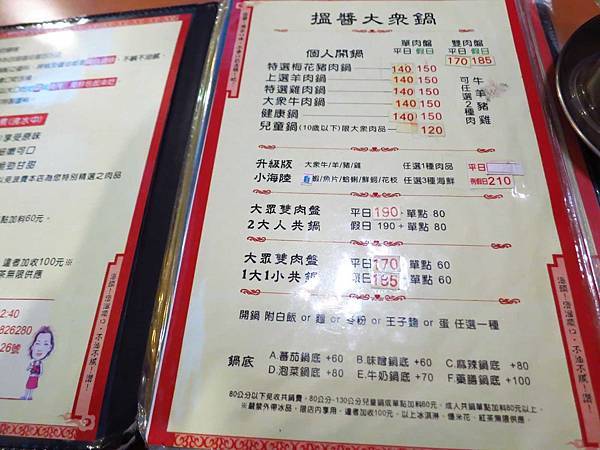 享受原味
嫩可口
脆勁甘甜
浪費本店為您特別精選之肉品
點加料60元。
違者加收100元※
茶無限供應
2:40
826280
26號
搵醬大衆鍋
單肉盤 雙肉盤
個人開鍋 平日 假日 平日 假日
170 185
特選梅花豬肉鍋 140 150
上選羊肉鍋 140 150
特選雞肉鍋 140 150
大衆牛肉鍋 140 150
健康鍋 140 150
兒童鍋(10歲以下)限大衆肉品 120
牛羊豬雞
可任選2種肉
升級版 大衆牛/羊/豬/雞 任選1種肉品 平日
小海陸 蝦/魚片/蛤蜊/鮮蚵/花枝 任選3種海鮮 例假日210
大衆雙肉盤 平日 190 + 單點 80
2大人共鍋 假日 190 + 單點 80
大衆雙肉盤 平日 170 + 單點 60
1大1小共鍋 假日 185 + 單點 60
開鍋 附白飯 or 麵 or 冬粉 or 王子麵 or 蛋 任選一種
鍋底 A.蕃茄鍋底 +60 B.味噌鍋底 +60 C.麻辣鍋底 +80
D.泡菜鍋底 +80 E.牛奶鍋底 +70 F.藥膳鍋底 +100
80公分以下見收共鍋費。80公分-130公分兒童鍋或單點加料60元。成人共鍋單點加料80元以上。
※嚴禁外帶冰品，限店內享用。違者加收100元。以上冰淇淋、爆米花、紅茶無限供應。